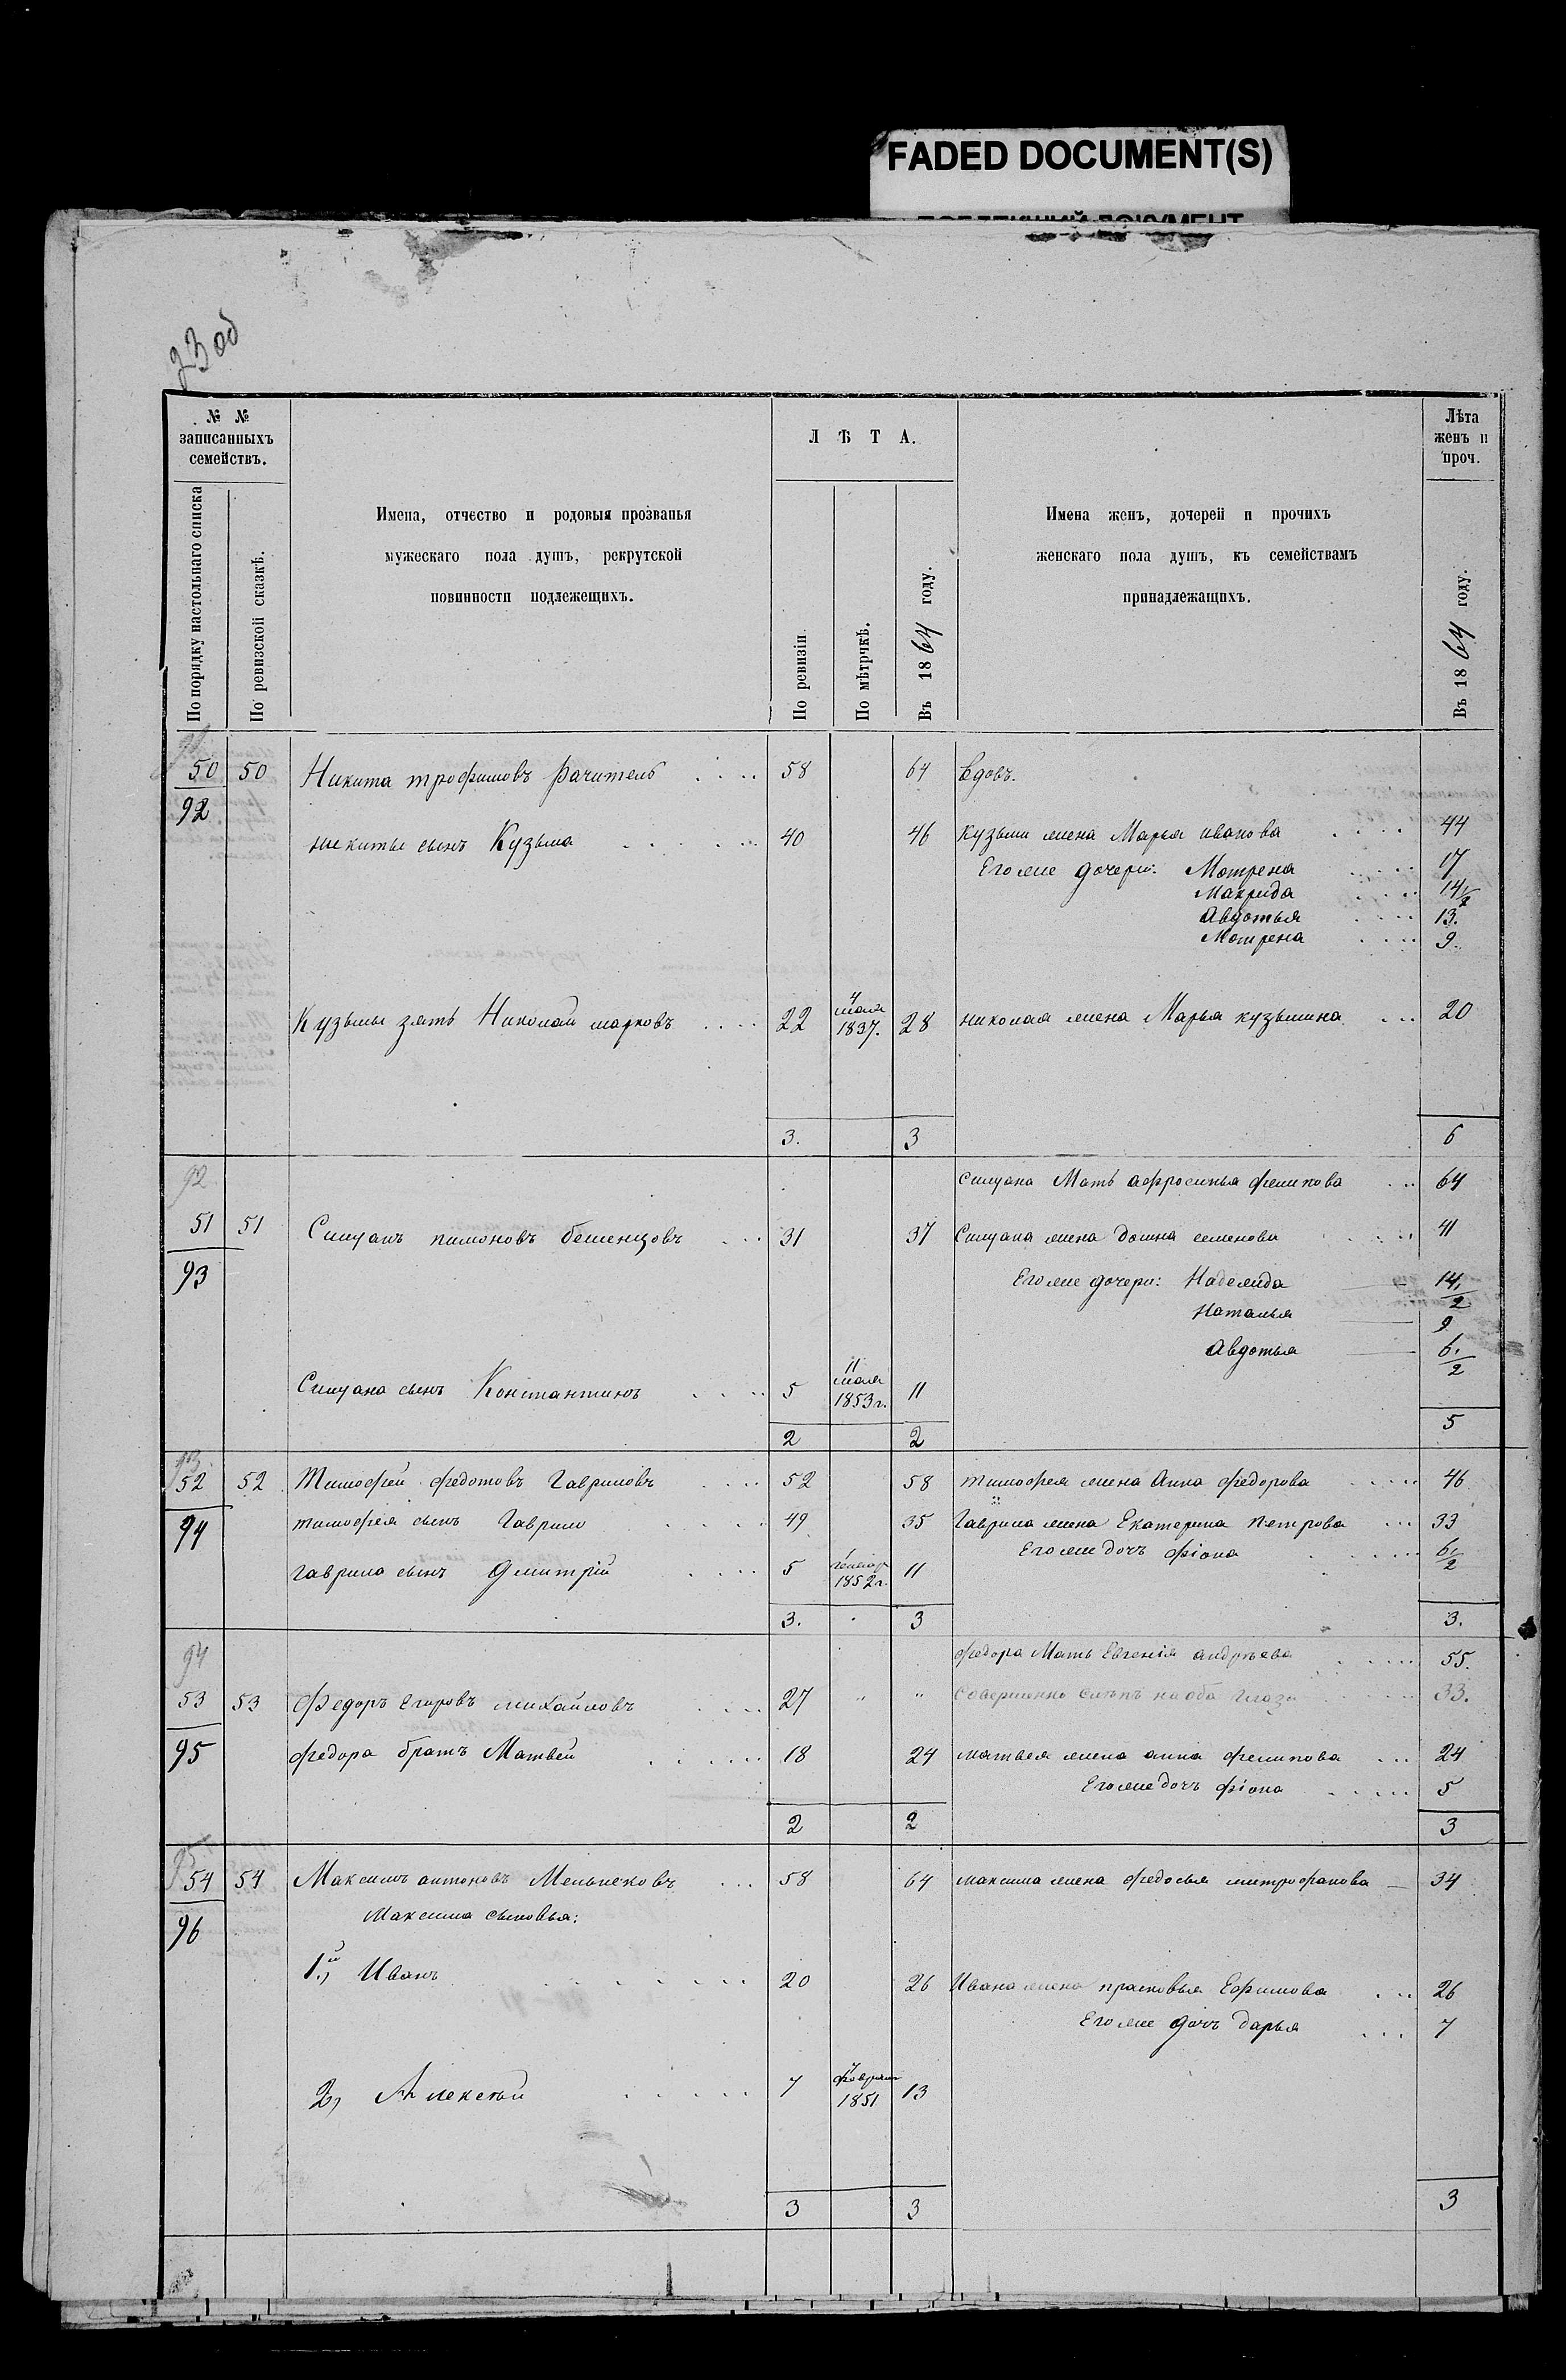 FADED DOCUMENT(S)
23 об
№ № записанныхъ семействъ.
По порядку настольнаго списка
По ревизской сказкѣ.
Имена, отчество и родовыя прозванья
мужескаго пола душъ, рекрутской
повинности подлежещихъ.
Л Ѣ Т А.
По ревизіи
По мѣтрчкѣ.
Въ 1864 году.
Имена женъ, дочерей и прочихъ
женскаго пола душъ, къ семействамъ
принадлежащихъ.
Лѣта женъ и проч.
Въ 1864 году.
50 50 Никита трофимовъ Рачитель 58 64 вдовъ.
92
никиты сынъ Кузьма 40 46 Кузьмы жена Марья иванова 44
Его же дочери: Мотрена 17
Макрида 14 1/2
Авдотья 13.
Мотрена 9.
Кузьмы зять Николай марковъ 22 4 мая 1837. 28 николая жена Марья кузьмина 20
3. 3 6
92 Силуана Мать афросинья филипова 64
51 51 Силуанъ пимоновъ бешенцовъ 31 37 Силуана жена Домна семенова 41
93 Его же дочери: Надежида 14 1/2
Наталья 9
Авдотья 6 1/2
Силуана сынъ Константинъ 5 11 мая 1853 г. 11
2 2 5
93
52 52 Тимофей федотовъ Гавриловъ 52 58 тимофея жена Анна федорова 46
94 тимофея сынъ Гаврило 49 35 Гаврила жена Екатерина петрова 33
Его же дочь фіона 6 1/2
гаврила сынъ Дмитрій 5 1 генвар 1852 г. 11
3. 3 3.
94 федора Мать Евгенія андрѣева 55.
53 53 Федоръ Егоровъ михайловъ 27 " " Совершенно слѣпъ на оба глаза 33.
95 федора братъ Матвей 18 24 матвея жена анна филипова 24
Его же дочь фіона 5
2 2 3
95
54 54 Максимъ антоновъ Мельнековъ 58 64 максима жена федосья митрофанова 34
96 Максима сыновья:
1.й, Иванъ 20 26 Ивана жена прасковья Ефимова 26
Его же дочь дарья 7
2, Алексѣй 7 февраля 1851 13
3 3 3